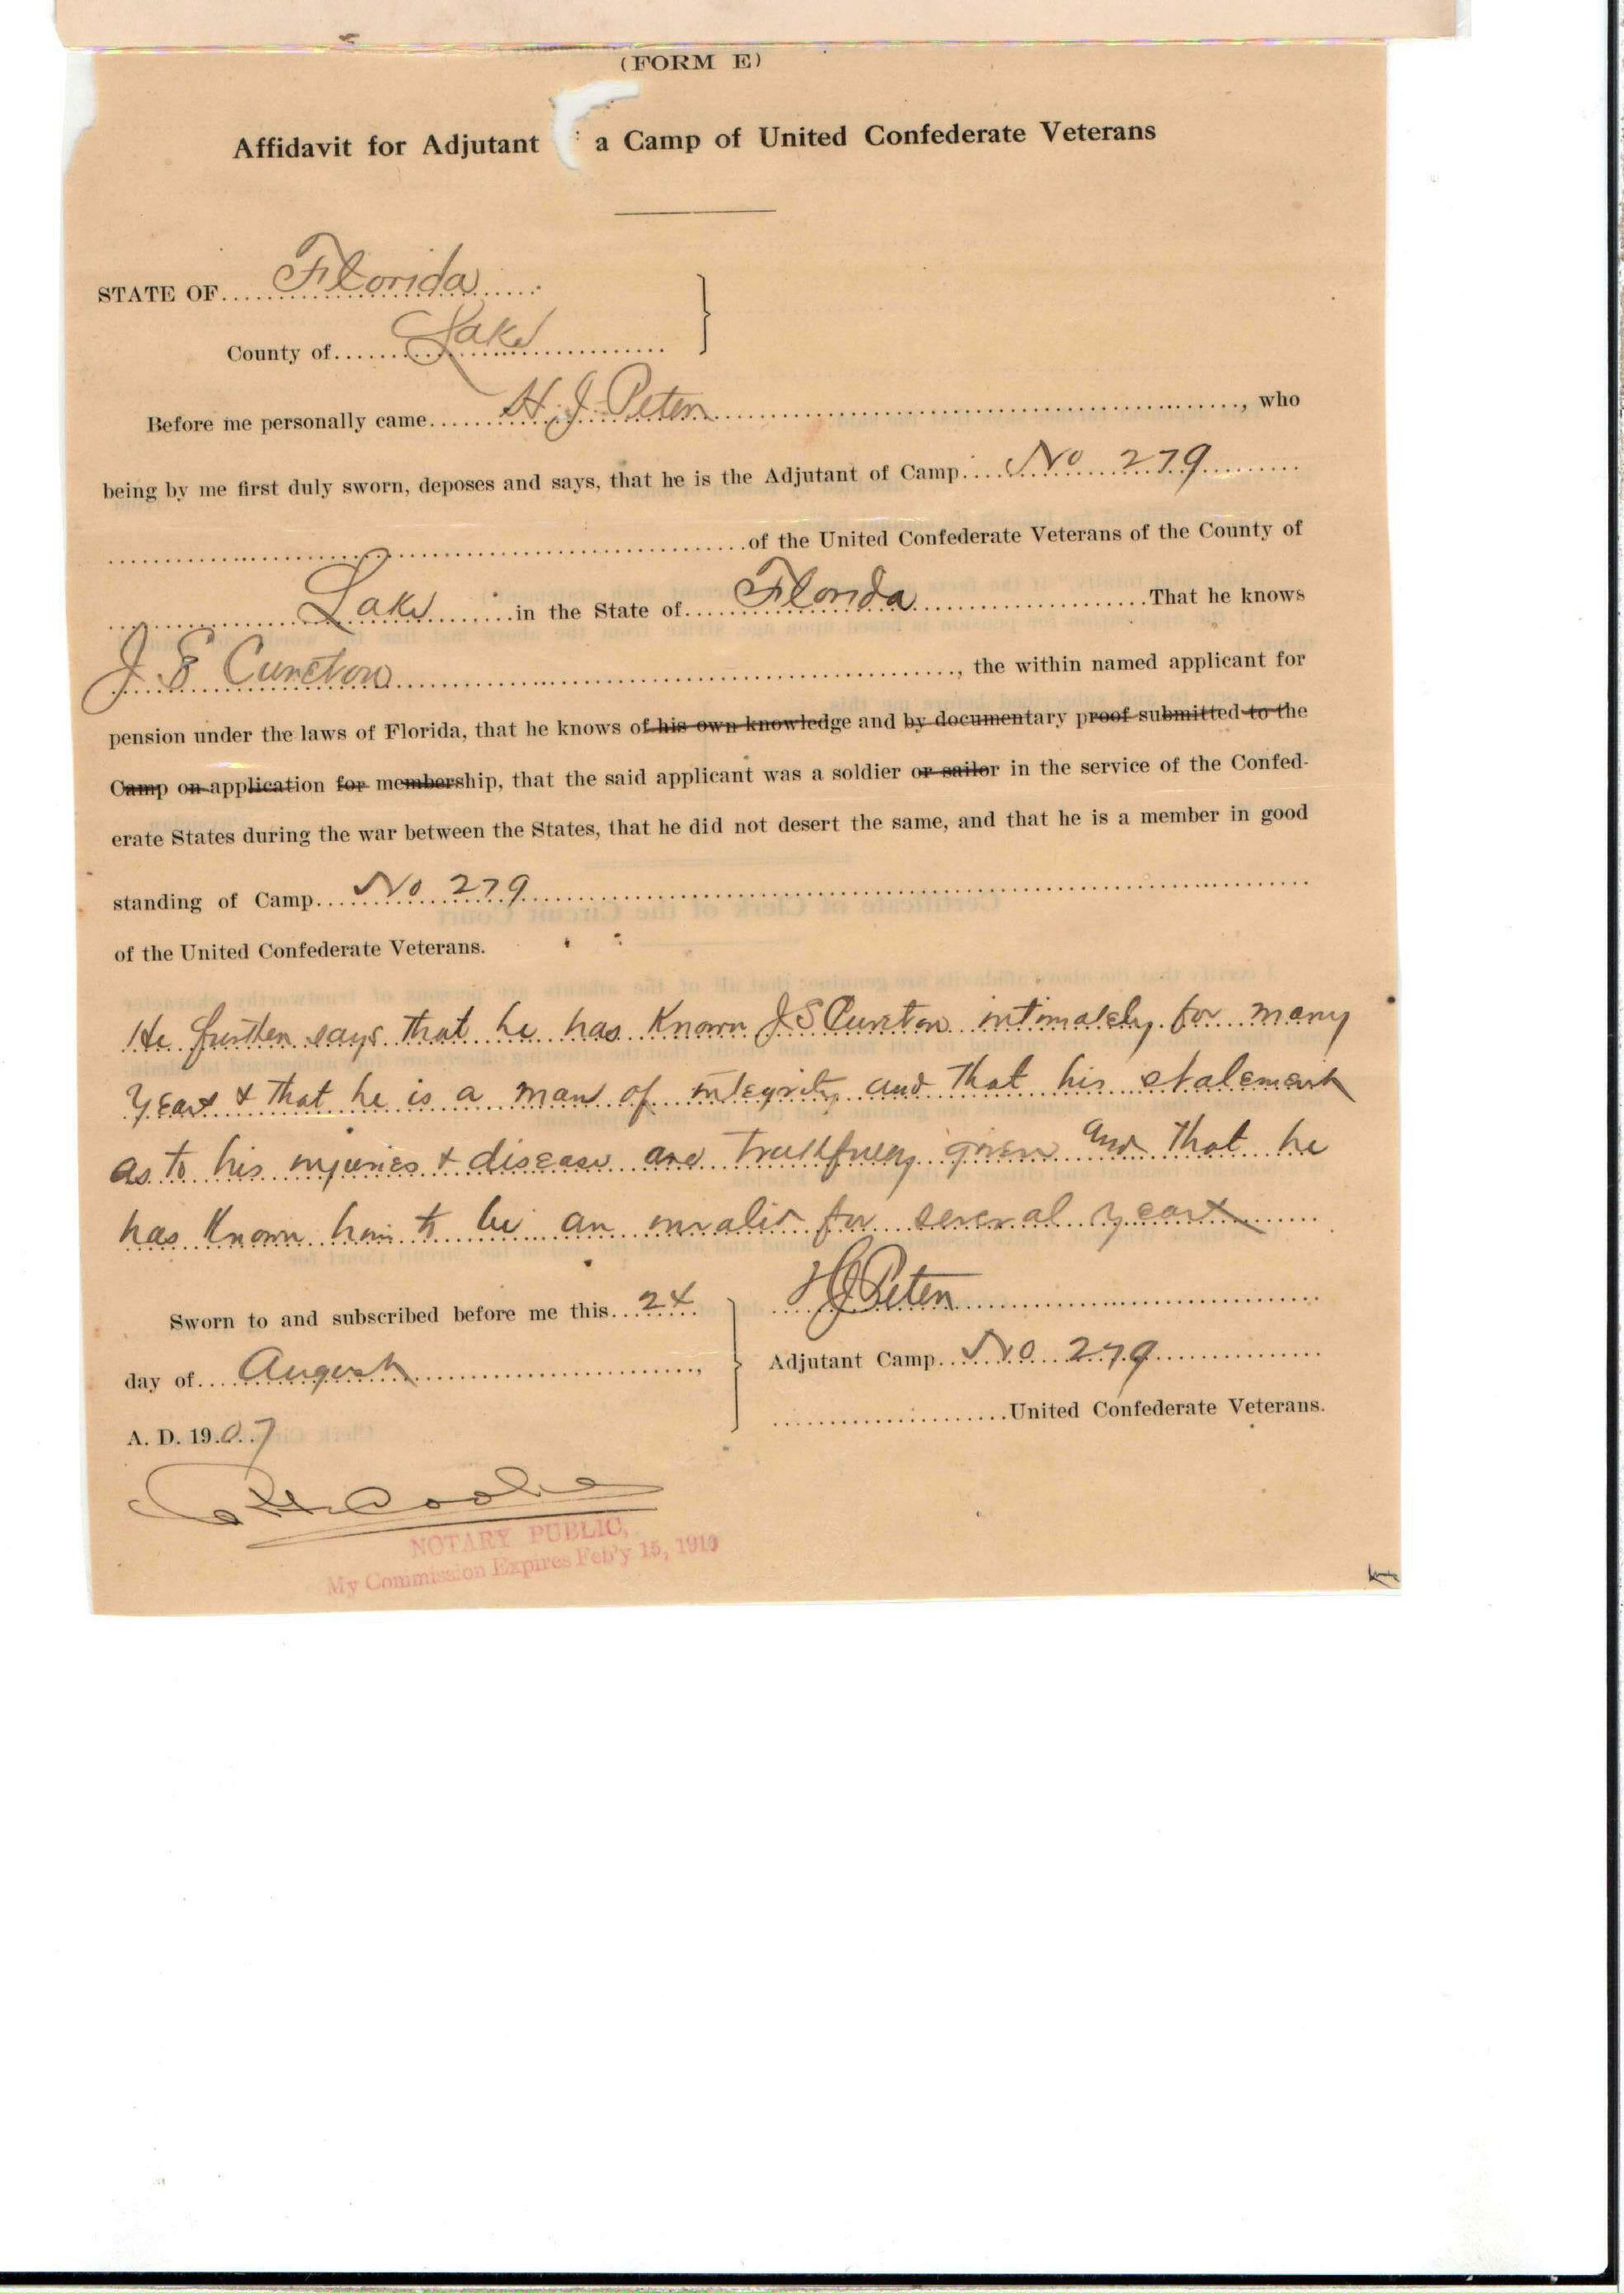 (FORM E)
Affidavit for Adjutant a Camp of United Confederate Veterans
STATE OF Florida
County of Lake
Before me personally came H. J. Peter, who
being by me first duly sworn, deposes and says, that he is the Adjutant of Camp No 279
of the United Confederate Veterans of the County of
Lake in the State of Florida That he knows
J S Cureton, the within named applicant for
pension under the laws of Florida, that he knows of his own knowledge and by documentary proof submitted to the
Camp on application for membership, that the said applicant was a soldier or sailor in the service of the Confed-
erate States during the war between the States, that he did not desert the same, and that he is a member in good
standing of Camp No 279
of the United Confederate Veterans.
He further says that he has Known J S Cureton intimately for many
years & that he is a man of integrity and that his statements
as to his injuries & disease are truthfully given and that he
has Known him to be an invalid for several years
Sworn to and subscribed before me this 24
H J Peter
day of August,
Adjutant Camp No 279
A. D. 1907
United Confederate Veterans.
NOTARY PUBLIC,
My Commission Expires Feb'y 15, 1910